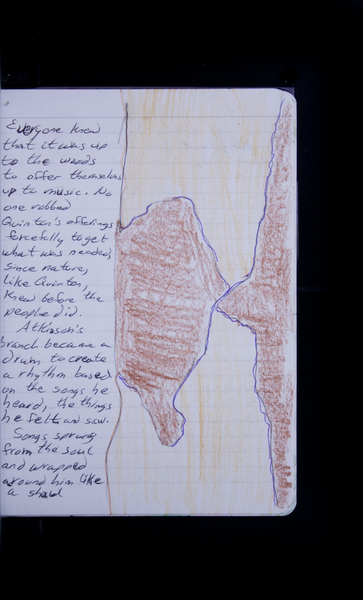 Everyone knew
that it was up
to the woods
to offer themselves
up to music. No
one robbed
Quinton's offerings
forcefully to get
what was needed,
since nature,
like Quinton,
knew before the
people did.
Atkinson's
branch became a
drum to create
a rhythm based
on the songs he
heard, the things
he felt and saw.
Songs sprung
from the soul
and wrapped
around him like
a shawl